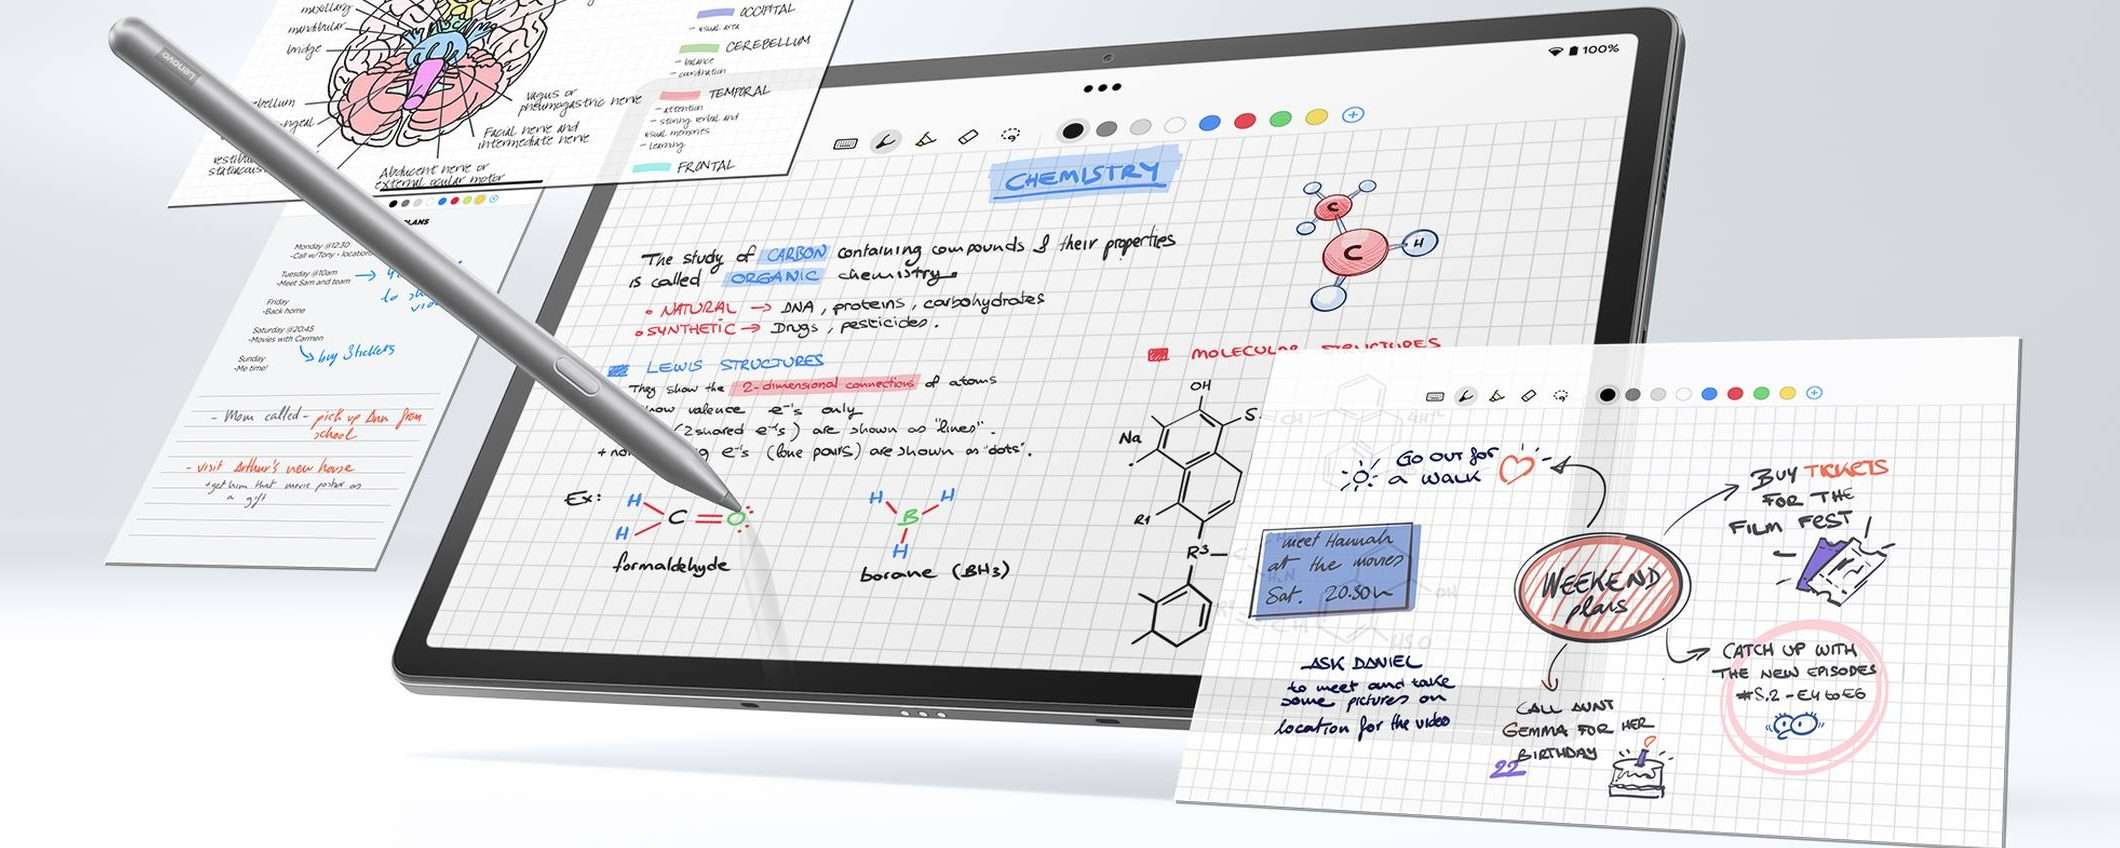 maxillary
mandibular
bridge
vagus or
pneumogastric nerve
Facial nerve and
intermediate nerve
Abducent nerve or
external ocular motor
OCCIPITAL
- visual area
CEREBELLUM
- balance
- coordination
TEMPORAL
- attention
- storing verbal and
visual memories
- learning
FRONTAL
Lenovo
Monday @12:30
-Call w/Tony - location
Tuesday @10am
-Meet Sam and team
Friday
-Back home
Saturday @20:45
-Movies with Carmen
buy 3 tickets
Sunday
-Me time!
- Mom called - pick up Ann from
school
- visit Arthur's new house
+get him that movie poster as
a gift
100%
CHEMISTRY
The study of CARBON containing compounds & their properties
is called ORGANIC chemistry.
• NATURAL → DNA, proteins, carbohydrates
• SYNTHETIC → Drugs, pesticides.
LEWIS STRUCTURES
They show the 2-dimensional connections of atoms
valence e⁻'s only
(2 shared e⁻'s) are shown as "lines".
e⁻'s (lone pairs) are shown as "dots".
Ex:
H
H
C
O
formaldehyde
H
H
B
H
borane (BH3)
C
C
H
MOLECULAR STRUCTURES
OH
S
Na
R1
R3
GO OUT FOR
a WALK
meet Hannah
at the movies
Sat. 20.30h
ASK DANIEL
to meet and take
some pictures on
location for the video
WEEKEND
plans
BUY TICKETS
FOR THE
FILM FEST
CATCH UP WITH
THE NEW EPISODES
#S.2 - E4 to E6
CALL AUNT
GEMMA FOR HER
BIRTHDAY
22